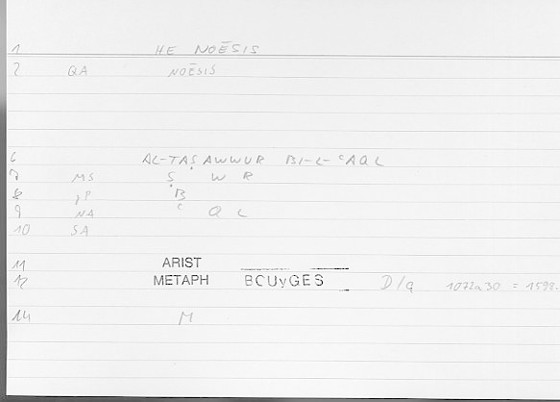 1 HE NOĒSIS
2 QA NOĒSIS
6 AL-TAṢAWWUR BI-L-ʿAQL
7 MS Ṣ W R
8 B
9 NA ʿ Q L
10 SA
11 ARIST
12 METAPH BOUyGES D/a 1072a30 = 1599.
14 M